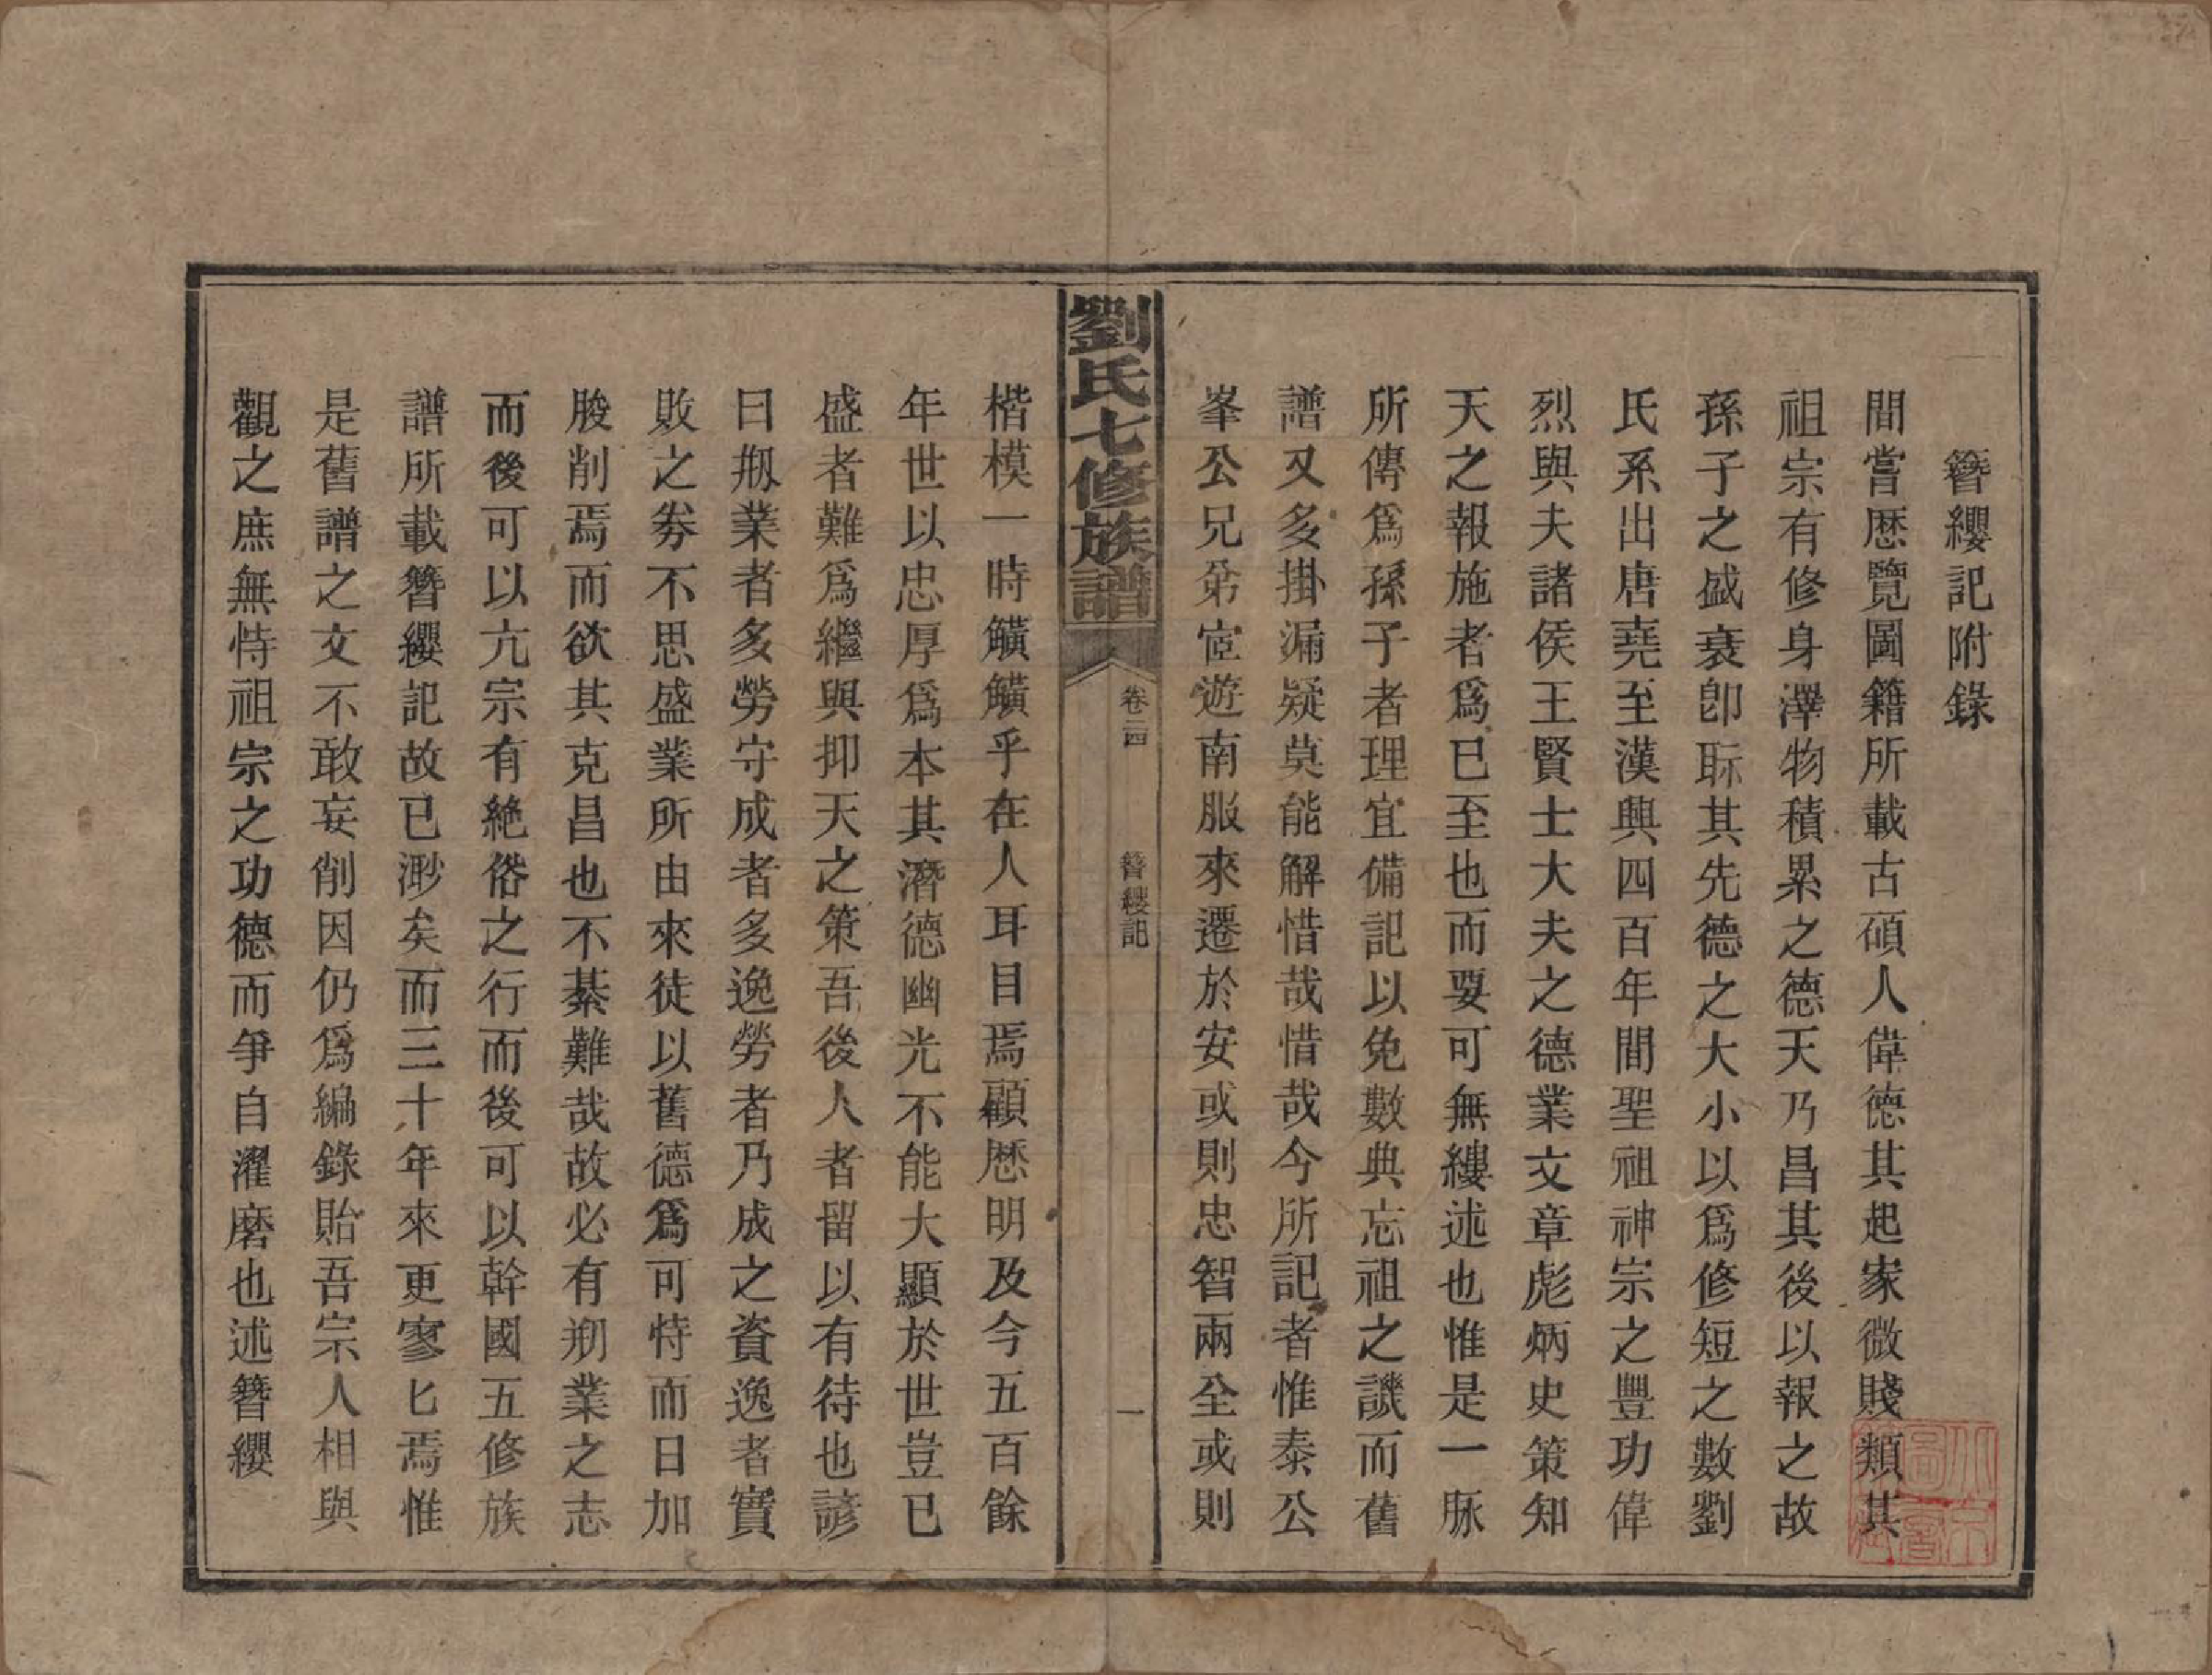 簪纓記附錄
間嘗歴覽圖籍所載古碩人偉德其起家微賤類其
祖宗有修身澤物積累之德天乃昌其後以報之故
孫子之盛衰卽眎其先德之大小以爲修短之數劉
氏系出唐堯至漢興四百年間聖祖神宗之豐功偉
烈與夫諸侯王賢士大夫之德業文章彪炳史策知
天之報施者爲已至也而要可無縷述也惟是一脉
所傳爲孫子者理宜備記以免數典忘祖之譏而舊
譜又多掛漏疑莫能解惜哉惜哉今所記者惟泰公
峯公兄弟宦遊南服來遷於安或則忠智兩全或則
劉氏七修族譜
卷二四
簪纓記
一
楷模一時鱑鱑乎在人耳目焉顧歴明及今五百餘
年世以忠厚爲本其潛德幽光不能大顯於世豈已
盛者難爲繼與抑天之策吾後人者留以有待也諺
曰剏業者多勞守成者多逸勞者乃成之資逸者實
敗之劵不思盛業所由來徒以舊德爲可恃而日加
朘削焉而欲其克昌也不綦難哉故必有剏業之志
而後可以亢宗有絶俗之行而後可以幹國五修族
譜所載簪纓記故已渺矣而三十年來更寥匕焉惟
是舊譜之文不敢妄削因仍爲編錄貽吾宗人相與
觀之庶無恃祖宗之功德而爭自濯磨也述簪纓